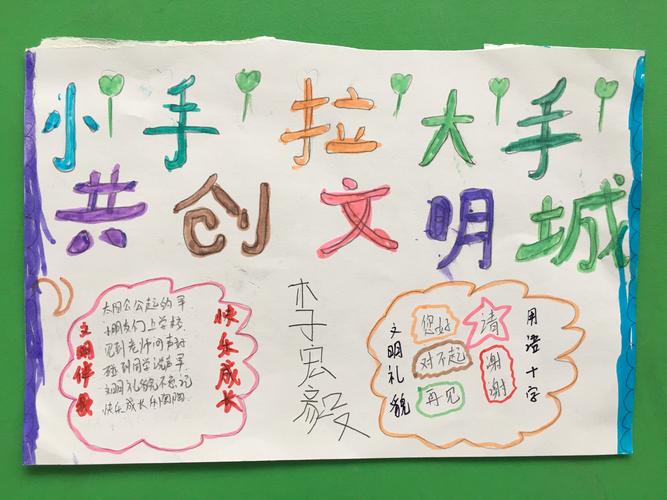 小手拉大手
共创文明城
文明伴我
太阳公公起的早
小朋友们上学校
见到老师问声好
碰到同学说声早
文明礼貌不忘记
快乐成长乐陶陶
快乐成长
李宏毅
文明礼貌
您好
请
对不起
谢谢
再见
用语十字